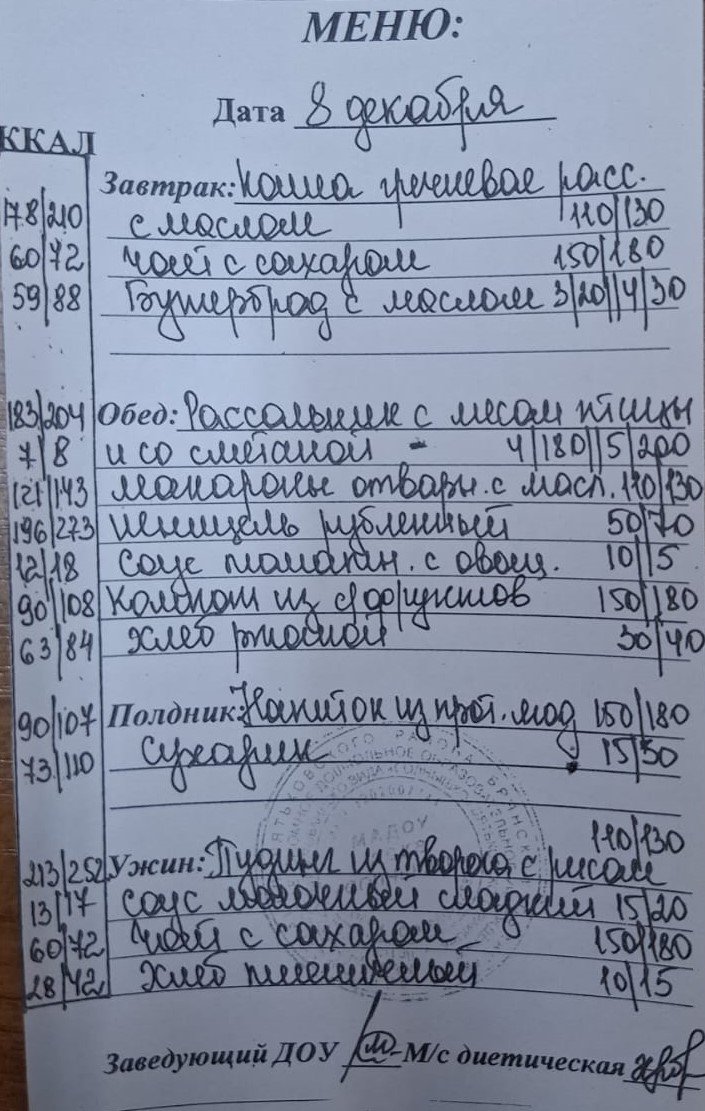 МЕНЮ:
Дата 8 декабря
ККАЛ
Завтрак: Каша гречневая расс.
178/210 с маслом 110/130
60/72 чай с сахаром 150/180
59/88 Бутерброд с маслом 3/20//4/30
183/204 Обед: Рассольник с мясом птицы
7/8 и со сметаной - 4/180//5/200
121/143 макароны отварн. с масл. 110/130
196/273 шницель рубленный 50/70
12/18 соус томатн. с овощ. 10/15
90/108 Компот из с/фруктов 150/180
63/84 хлеб ржаной 30/40
90/107 Полдник: Напиток из прот. 150/180
73/110 сухарик 15/30
110/130
213/252 Ужин: Пудинг из творога с рисом
13/17 соус молочный сладкий 15/20
60/72 чай с сахаром 150/180
28/42 хлеб пшеничный 10/15
Заведующий ДОУ М/с диетическая